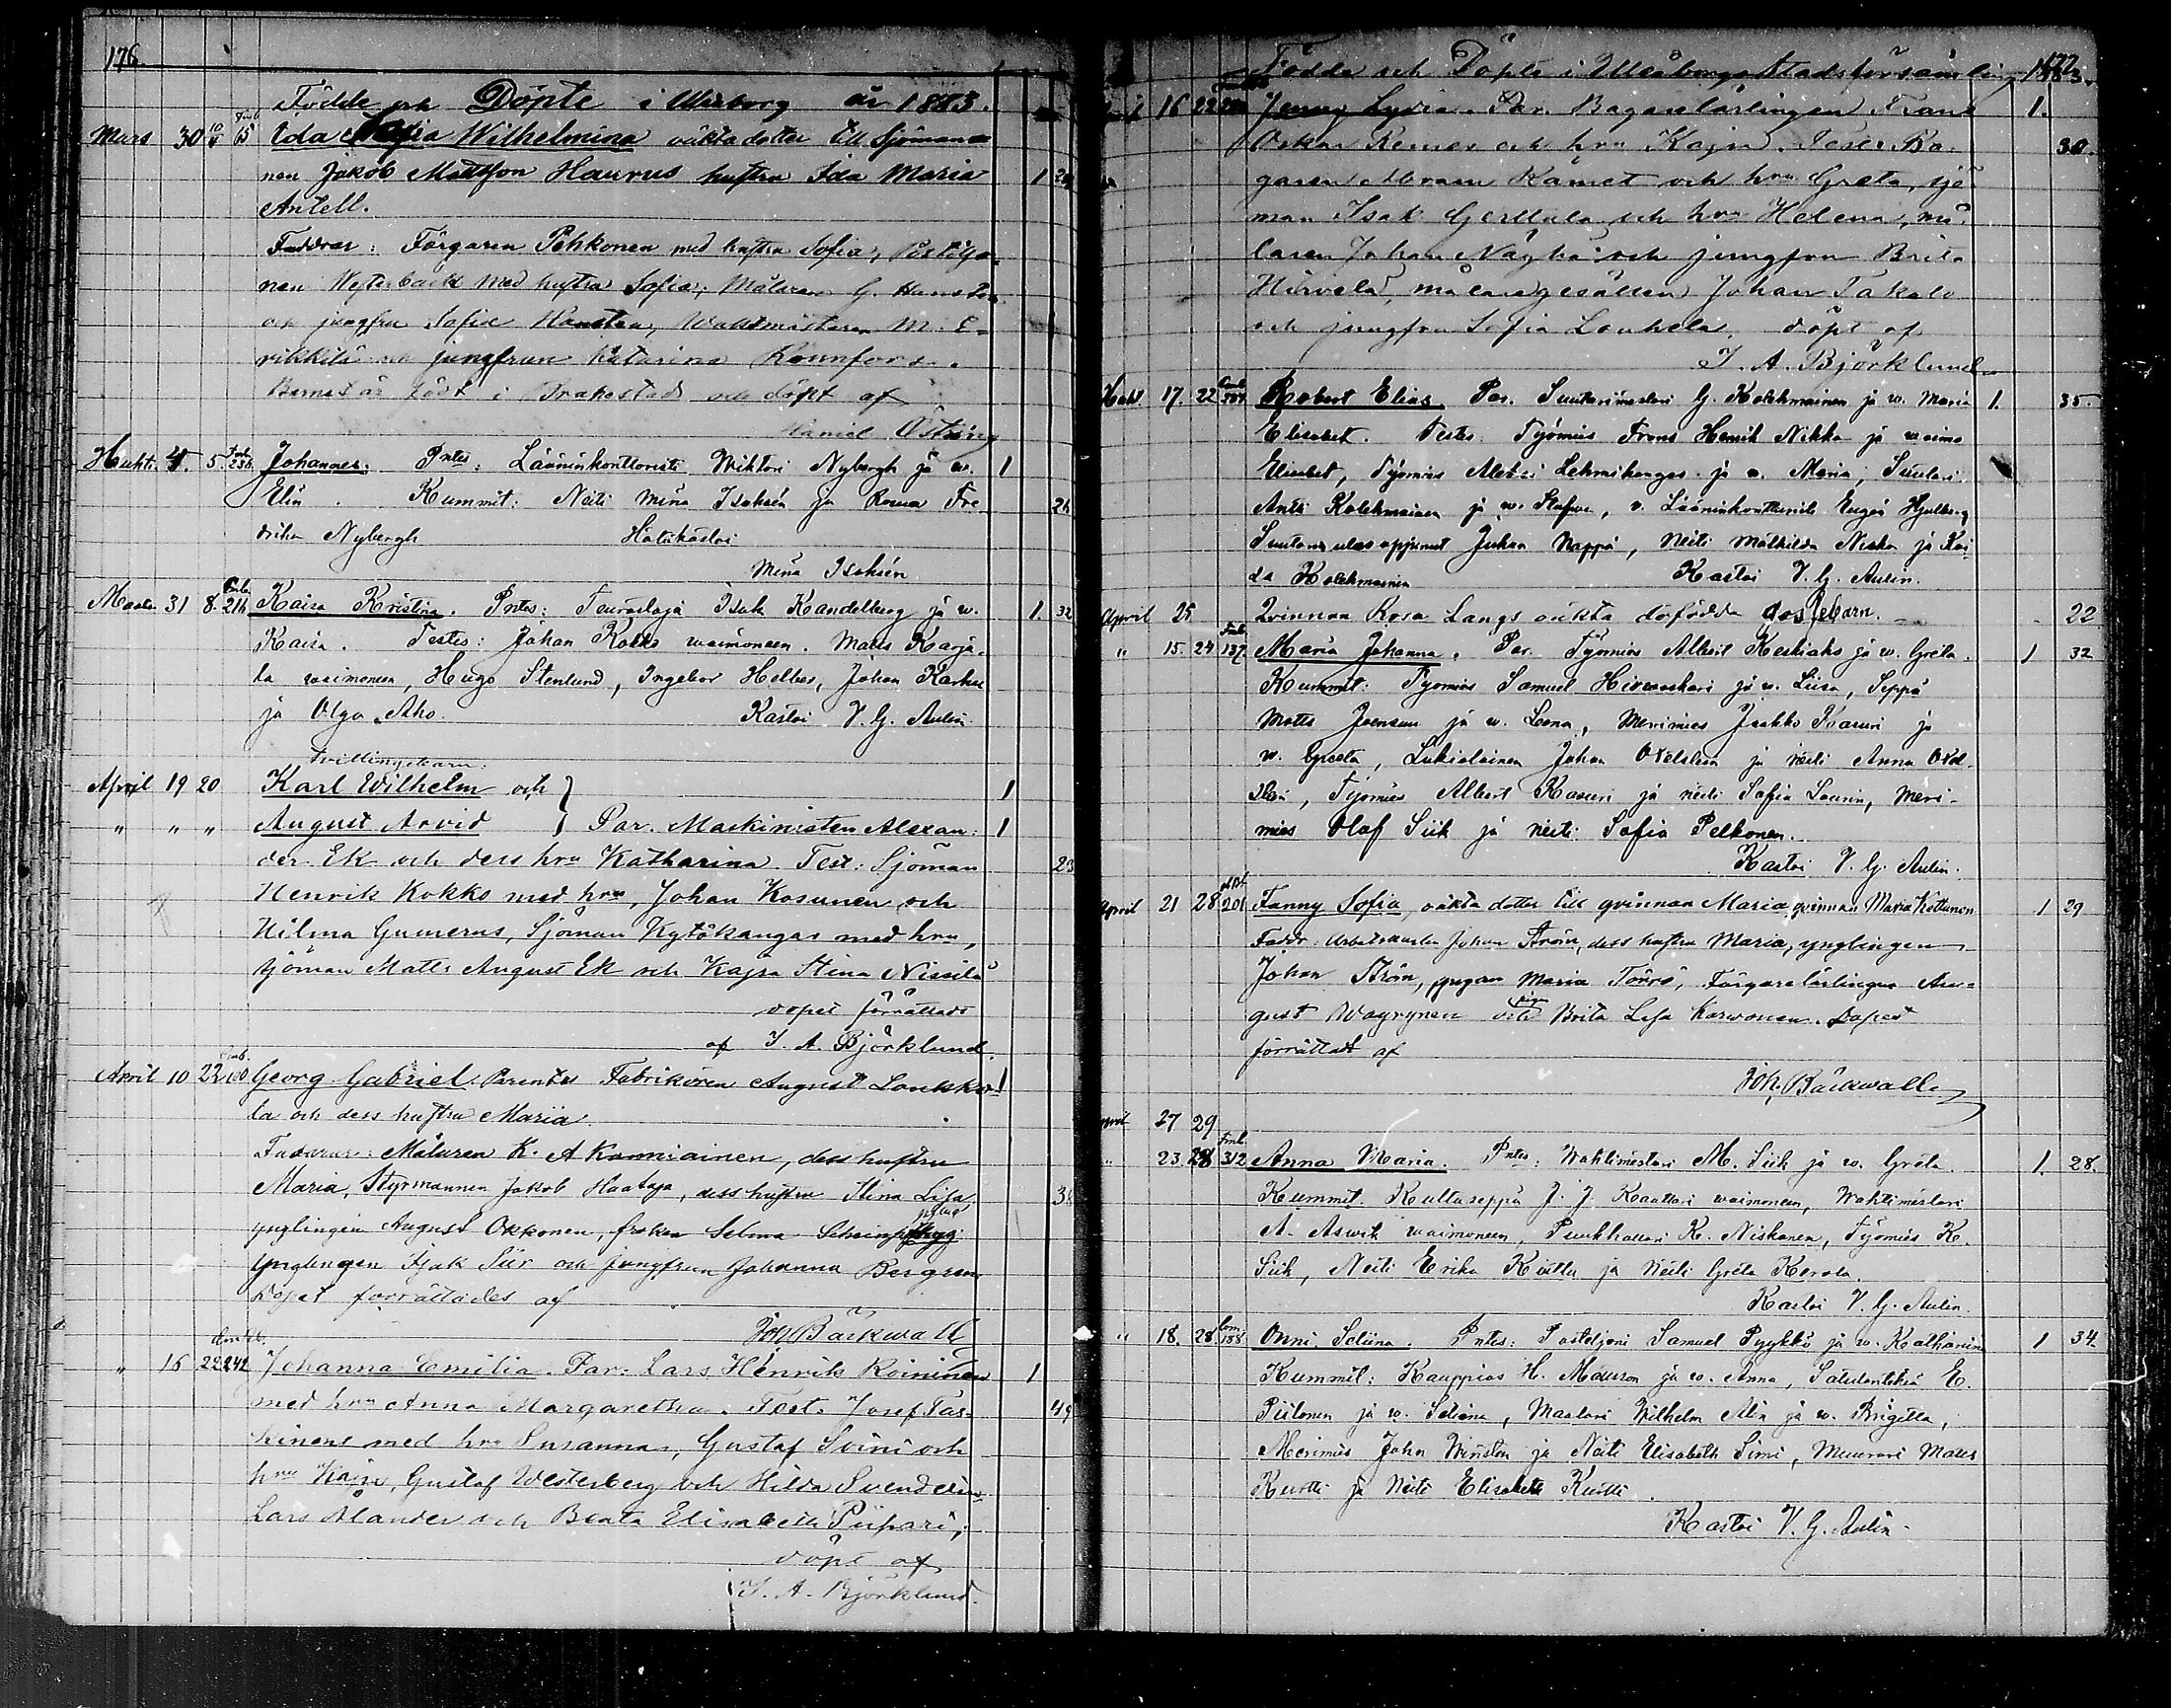 176.
Födde och Döpte i Uleåborg år 1883.
Mars 30 10/4 Fmb. 65 Ida Sofia Wilhelmina oäkta dotter till Sjöman-
nen Jakob Mattson Haurus hustru Ida Maria 1
Antell.
Faddrar: Färgaren Pehkonen med hustru Sofia, Postiljo-
nen Westerback med hustru Sofia, Målaren G.
och jungfru Sofia Wahtmästaren M. E-
rikkilä och jungfrun Katarina
Barnet är född i Brahestad och döpt af
Daniel Östring
Huhti. 4. 5. 236 Johannes. Pntes: Lääninkonttoristi Wiktori Nybergh ja w. 1
Elin. Kummit: Neiti Mina Isaksén ja Rouwa Fre- 26
drika Nybergh Hätäkastoi
Mina Isaksén.
Maalis. 31 8. 216 Kaisa Kristina. Pntes: Teurastaja Isak Kandelberg ja w. 1. 32
Kaisa. Testes: Johan Kokko waimoneen. Matts Karja-
la waimoneen, Hugo Stenlund, Ingebor Helber, Johan Karhu
ja Olga Aho. Kastoi V. G. Aulin
Tvillingebarn.
April 19 20 Karl Wilhelm och } 1
" " " August Arvid } Par. Maskinisten Alexan- 1
der Ek och dess hru Katharina Test: Sjöman 23
Henrik Kokko med hru, Johan Kosunen och
Hilma Gumerus, Sjöman Kytökangas med hru,
sjöman Matts August Ek och Kajsa Stina Nissilä
dopet förrättade
af I. A. Björklund.
April 10 22 100 Georg Gabriel. Parentes Fabrikören August Loukko- 1
la och dess hustru Maria
Faddrar: Målaren K. A Kanniainen, dess hustru
Maria, Styrmannen Jakob Haataja, dess hustru Stina Lisa
ynglingen August Okkonen, fröken Selma
ynglingen Isak Siir och jungfrun Johanna Bergren
Dopet förrättades af
Joh Bäckwall
" 16 22 242 Johanna Emilia. Par: Lars Henriks Koininen 1
med hru Anna Margaretha. Test. Josef Tas- 49
kinens med hru Susanna, Gustaf Soini och
hru Kajsa, Gustaf Westerberg och Hilda Svendelin
Lars Ålander och Beata Elisabeth Piipari,
döpt af
I. A. Björklund.
Födde och Döpte i Uleåborgs Stadsförsamling 1883.
177.
April 16 22 Jenny Lydia. Par. Bagarelärlingen Frans 1.
Oskar Remes och hru Kajsa. Test: Ba- 30.
garen Abram Kämet och hru Greta, sjö-
man Isak Gerttula och hru Helena, må-
laren Johan Näyhä och jungfru Brita
Hirvelä, målaregesällen Johan Takalo
och jungfru Sofia Louhela. döpt af
I. A. Björklund
Huht. 17. 22 Robert Elias. Par. Suutarimestari G. Kolehmainen ja w. Maria 1. 35.
Elisabet. Testes. Työmies Frans Henrik Nikka ja waimo
Elisabet, Työmies Aleksi Lehmikangas ja w. Maria, Suutari
Antti Kolehmainen ja w. Stafwa, v. Lääninkontturisti Hjulberg
Suutari Juhan Nappa, Neiti Mathilda Niska ja Kai-
sa Kolehmainen Kastoi V. G. Aulin.
April 25 Qvinnan Rosa Langs oäkta dödfödda gossebarn. 22
" 15. 24 137 Maria Johanna. Par. Työmies Albert Keskiaho ja w. Greta. 1 32
Kummit: Työmies Samuel ja w. Liisa, Seppä
Matts Joensuu ja w. Leena, Merimies Jaakko Kasuri ja
w. Greta, Lukiolainen Johan ja neiti Anna
Työmies Albert Kasuri ja neiti Sofia Meri-
mies Olof Siik ja Neiti Sofia Pelkonen.
Kastoi V. G. Aulin.
April 21 28 201 Fanny Sofia, oäkta dotter till qvinnan Maria qvinnan Maria Kettunen 1 29
Faddr: Arbetskarlen Johan Ström, dess hustru Maria, ynglingen
Johan Ström, pigan Maria Törrö, Färgarelärlingen Au-
gust Wäyrynen och pigan Brita Lisa Karwonen. Dopet
förrättadt af
Joh Bäckwall
April 27 29
" 23. 28 312 Anna Maria. Pntes: Wahtimestari M. Siik ja w. Greta. 1. 28.
Kummit. Kultaseppä J. J. Kaattari waimoneen, Wahtimestari
A. Aswik waimoneen, Puukhollari K. Niskanen, Työmies K.
Siik, Neiti Erika Kattu ja Neiti Greta Kerola.
Kastoi V. G. Aulin.
" 18. 28 158 Onni Seliina. Pntes: Posteljoni Samuel Pyykkö ja w. Katharina 1 34
Kummit: Kauppias H. Mattsson ja w. Anna, Satulantekiä E.
Piilonen ja w. Seliina, Maalari Wilhelm Alin ja w. Brigitta,
Merimies Johan ja Neiti Elisabeth Simi, Muurari Matts
Kurtti ja Neiti Elisabeth Kurtti.
Kastoi V. G. Aulin.